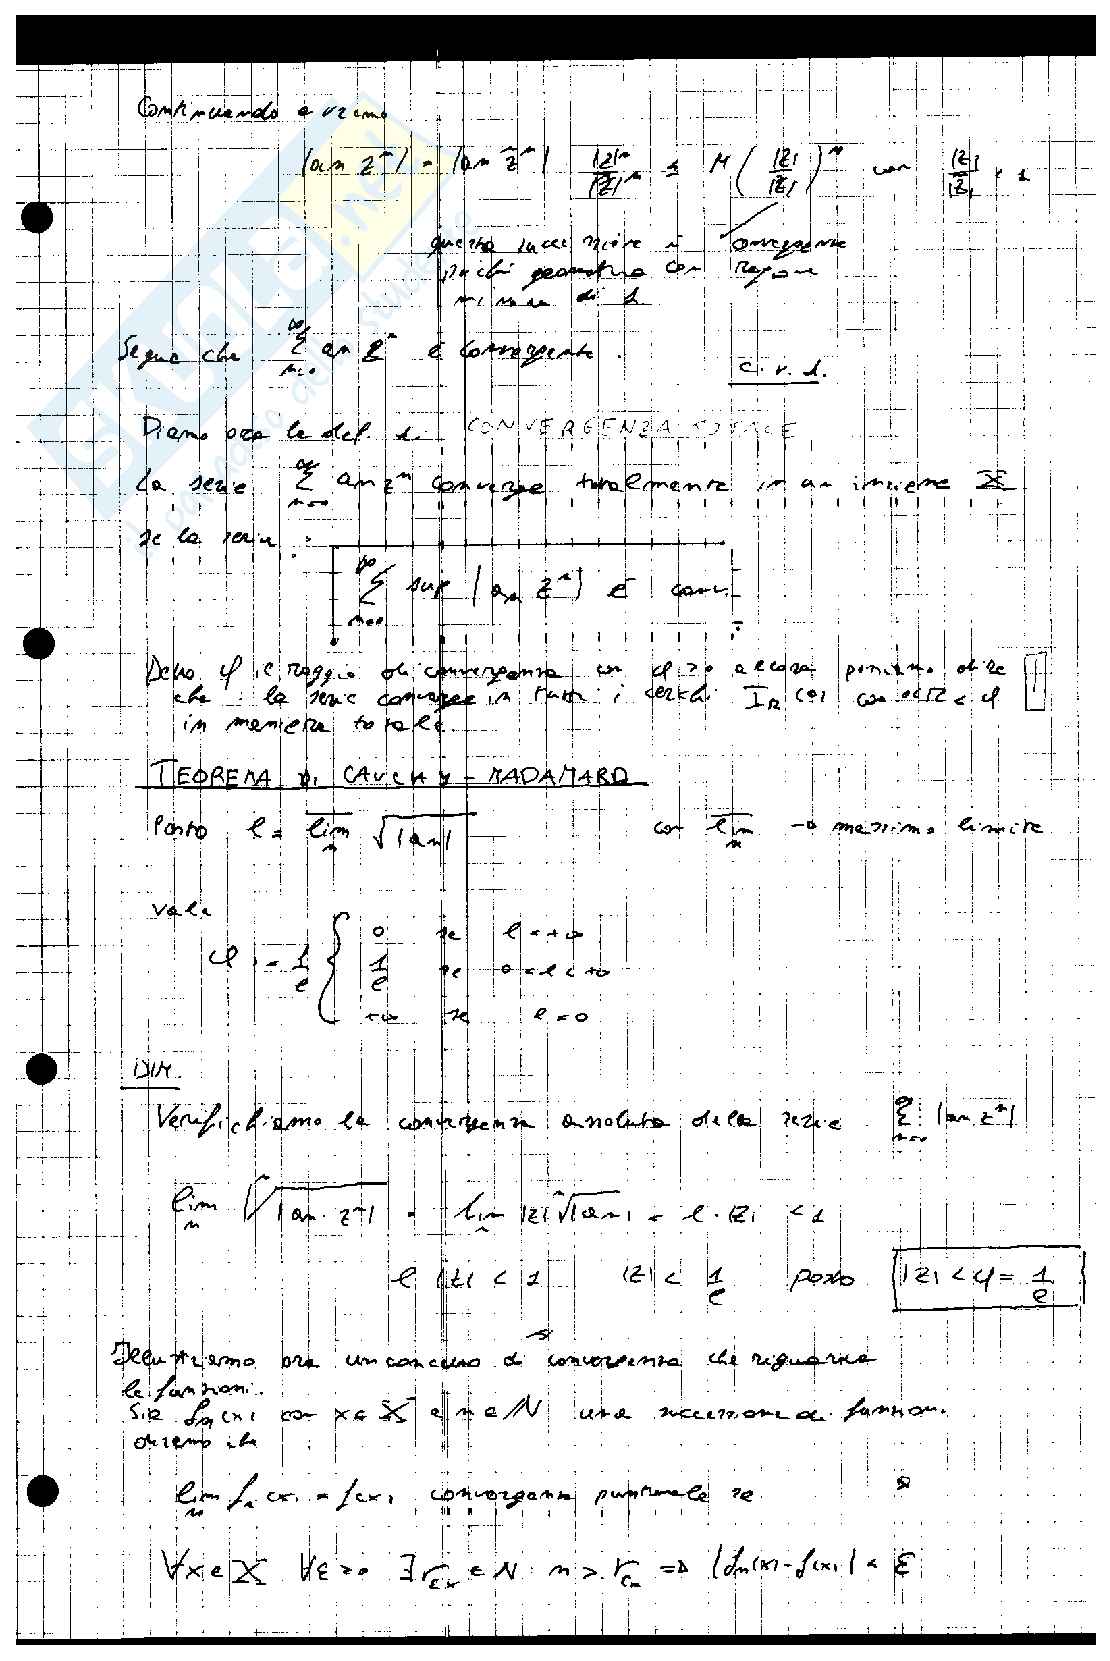 Continuando avremo
|an z^n| = |an z̄^n| |z|^n/|z̄|^n ≤ M (|z|/|z̄|)^n con |z|/|z̄| < 1
questa successione è convergente
perché geometrica con ragione
minore di 1
Segue che ∞ Σ n=0 an z^n è convergente.
c.v.d.
Diamo ora la def. di CONVERGENZA TOTALE
La serie ∞ Σ n=0 an z^n converge totalmente in un insieme X
se la serie :
∞ Σ n=0 sup |an z^n| è conv.
Detto φ il raggio di convergenza con φ>0 allora possiamo dire
che la serie converge in tutti i cerchi I_R(0) con 0<R<φ
in maniera totale.
TEOREMA DI CAUCHY-HADAMARD
Posto l = lim n √|an| con lim n → massimo limite
vale
φ = 1/l { 0 se l=+∞
1/l se 0<l<+∞
+∞ se l=0
DIM.
Verifichiamo la convergenza assoluta della serie ∞ Σ n=0 |an z^n|
lim n √|an·z^n| = lim n |z| √|an| = l·|z| < 1
l |z| < 1 |z| < 1/l posto |z| < φ = 1/l
Illustriamo ora un concetto di convergenza che riguarda
le funzioni.
Sia fn(x) con x∈X e n∈N una successione di funzioni.
diremo che
lim n fn(x) = f(x) convergenza puntuale se
∀x∈X ∀ε>0 ∃ r_εx ∈ N n > r_εx ⇒ |fn(x)-f(x)| < ε